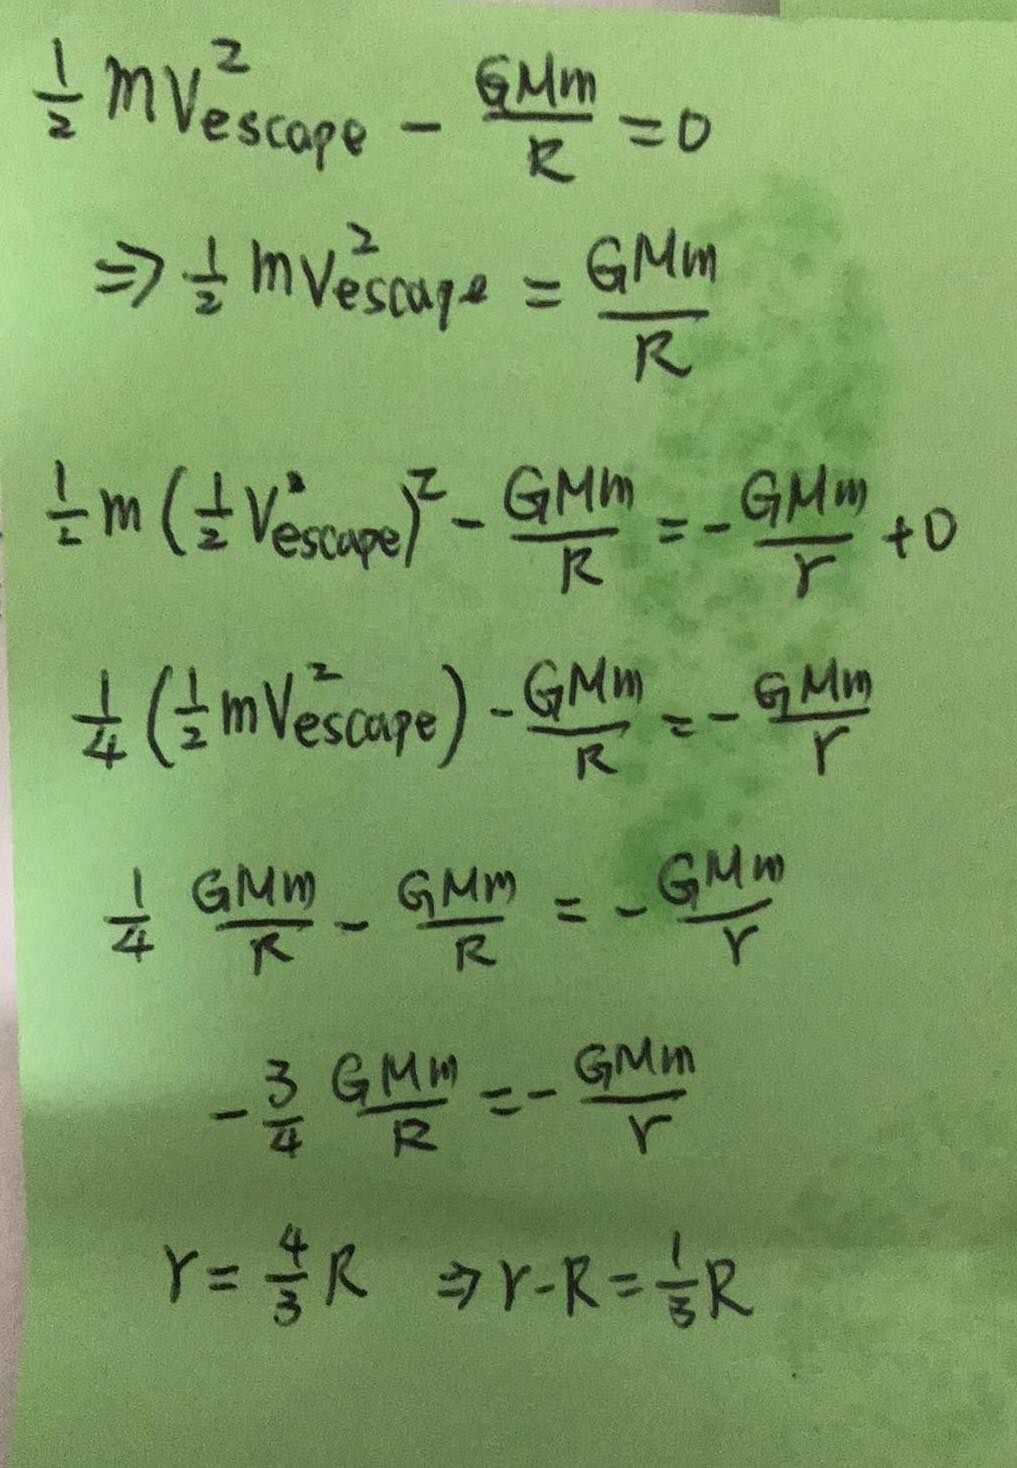 ½ mV²escape − GMm/R = 0
⇒ ½ mV²escape = GMm/R
½ m(½ Vescape)² − GMm/R = − GMm/r + 0
¼ (½ mV²escape) − GMm/R = − GMm/r
¼ GMm/R − GMm/R = − GMm/r
− ¾ GMm/R = − GMm/r
r = 4/3 R ⇒ r − R = ⅓ R